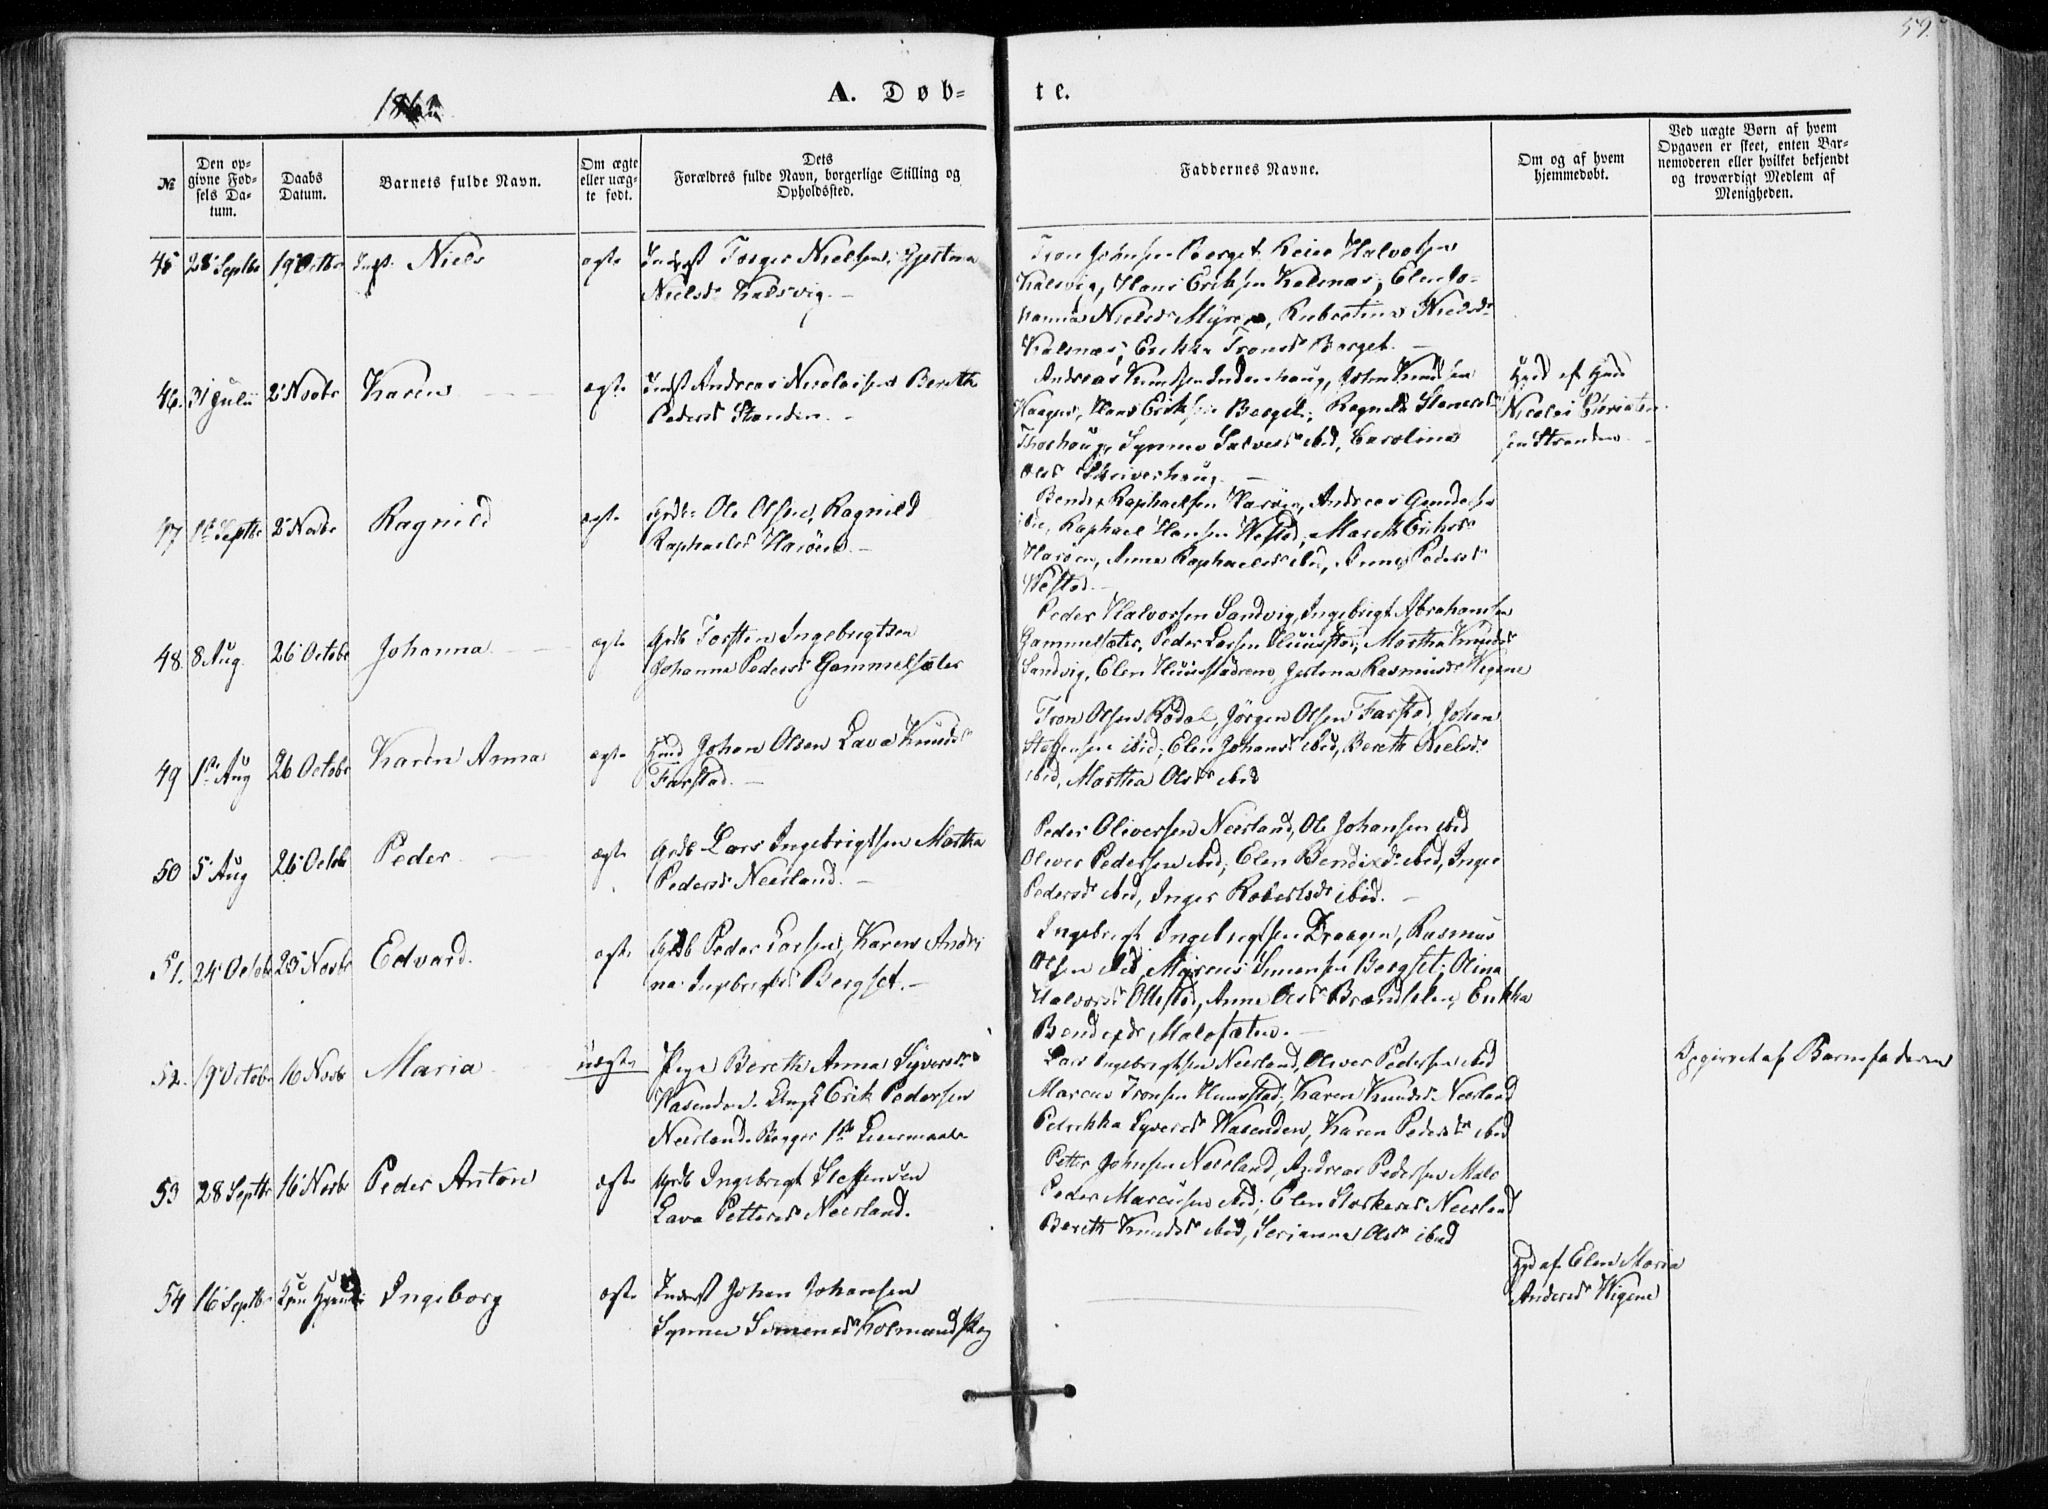 59.
A. Døb-
te.
№
Den op-
givne Fød-
sels Da-
tum.
Daabs
Datum.
Barnets fulde Navn.
Om ægte
eller uæg-
te født.
Dets
Forældres fulde Navn, borgerlige Stilling og
Opholdssted.
Faddernes Navne.
Om og af hvem
hjemmedøbt.
Ved uægte Børn af hvem
Opgaven er skeet, enten Bar-
nemoderen eller hvilket bekjendt
og troværdigt Medlem af
Menigheden.
45 28 Septbr 19 Octbr Niels ægte Torger Nielsen,
Nielsdr Kalsvig.
Tron Johnsen Berget, Halvorsen
Kalsvig, Hans Eriksen Kalsnæs; Elen Jo-
hanna Nielsdr Myren, Nielsdr
Kalsnæs, Erikka Tronsdr Berget.
46. 31 Julii 2 Novbr Karen ægte Indst Andreas Nicolaisen Bereth
Pedersdr Standen.
Andreas Knudsen John Knudsen
Hans Eriksen Berget; Ragnild
Synnev Salvesdr ibid, Carolina
Olsdr Skriverhaug.
Hjd af
Nicolai Christen
sen Stranden.
47 1st Septbr 2 Novbr Ragnild ægte Grdbr Ole Olsen, Ragnild
Raphaelsdr Harøen.
Bendix Raphaelsen Harøen, Andreas
ibid, Raphael Hansen Westad, Mareth Eriksdr
Harøen, Anne Raphaelsdr ibid, Anne Pedersdr
Westad.
48. 8 Aug. 26 Octobr Johanna ægte Grdb Torsten Ingebrigtsen
Johanna Pedersdr Gammelsæter
Peder Halvorsen Sandvig, Ingebrigt Abrahamsen
Gammelsæter, Peder Larsen Huusstad; Martha Knudsdr
Sandvig, Elen Huusstadren, Jertina Rasmusdr Wigene
49 1st Aug 26 Octobr Karen Anna ægte Hmd Johan Olsen Lava Knudsdr
Farstad.
Tron Olsen Rødal, Jørgen Olsen Farstad, Johan
Steffensen ibid; Elen Johansdr ibid, Bereth Nielsdr
ibid, Martha Olsdr ibid
50 5 Aug 26 Octobr Peder ægte Grdb Lars Ingebrigtsen Martha
Pedersdr Neerland.
Peder Oliversen Neerland, Ole Johansen ibid
Oliver Pedersen ibid; Elen Bendixdr ibid, Inger
Pedersdr ibid, Inger Robertsdr ibid.
51. 24 Octobr 23 Novbr Edvard. ægte Grdb Peder Larsen, Karen Andri
na Ingebrigtsdr Bergset.
Ingebrigt Ingebrigtsen Draagen, Rasmus
Olsen ibid, Marcus Simensen Bergset; Olina
Halvorsdr Ollestad, Anne Olsdr Brandslien; Erikka
Bendixdr Malosæter.
52. 19 Octobr 16 Novbr Maria uægte Pige Bereth Anna Syversdr
Wasenden. Ungk Erik Pedersen
Neerland. Begges 1ste Leiermaal
Lars Ingebrigtsen Neerland, Oliver Pedersen ibid
Marcus Tronsen Huusstad; Karen Knudsdr Neerland
Petrikka Syversdr Wasenden, Karen Pedersdr ibid
Opgivet af Barnefaderen
53 28 Septbr 16 Novbr Peder Anton ægte Grdb Ingebrigt Steffensen
Lava Pettersdr Neerland.
Petter Johnsen Neerland, Andreas Pedersen Malo
Peder Marcusen ibid; Elen Neerland
Bereth Knudsdr ibid, Serianna Olsdr ibid
54 16 Septbr Ingeborg ægte Inderst Johan Johansen
Synnev Simensdr Holmandskog
Hjd af Elen Maria
Andersdr Wigene